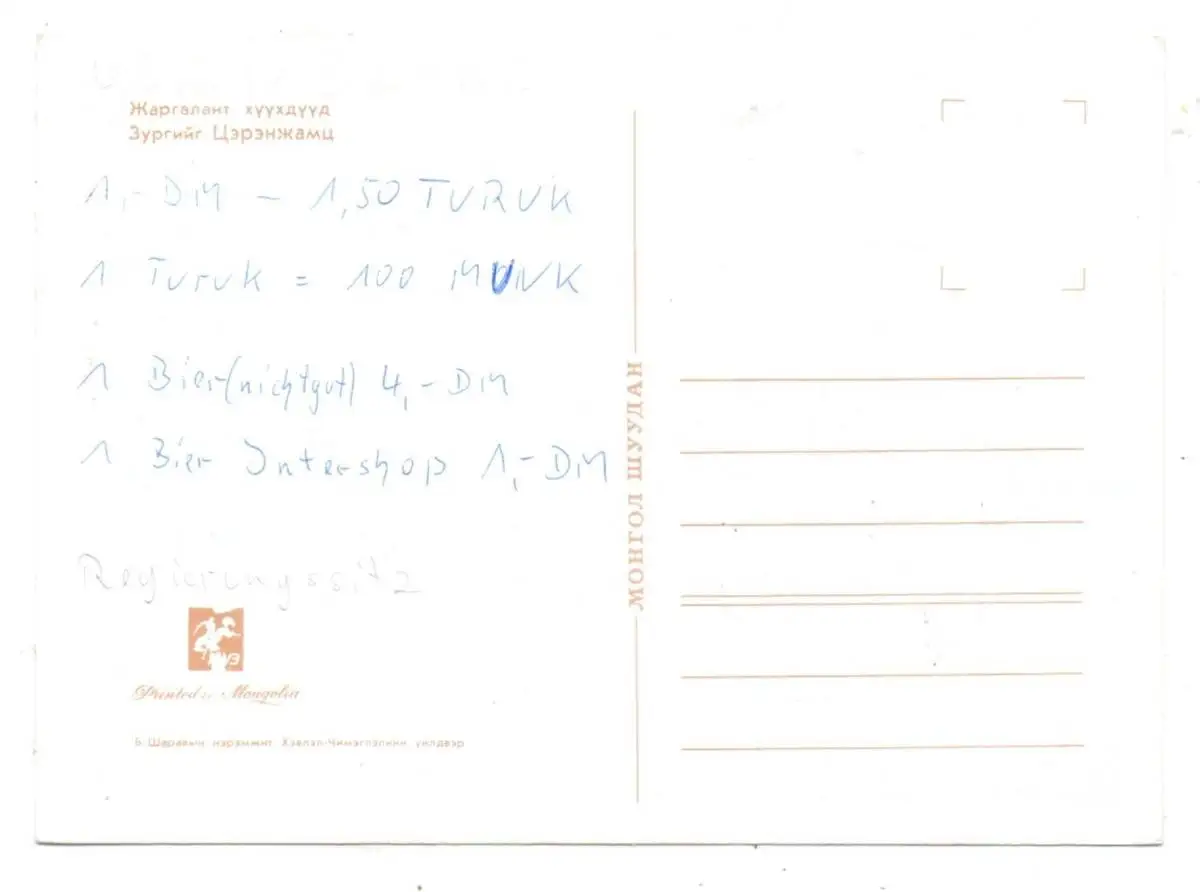 Жаргалант хүүхдүүд
Зургийг Цэрэнжамц
1,- DM – 1,50 TURUK
1 Turuk = 100 MUNK
1 Bier (nichtgut) 4,- DM
1 Bier Intershop 1,- DM
Regierungssitz
Printed in Mongolia
Б. Шаравын нэрэмжит Хэвлэл-Чимэглэлийн үйлдвэр
МОНГОЛ ШУУДАН